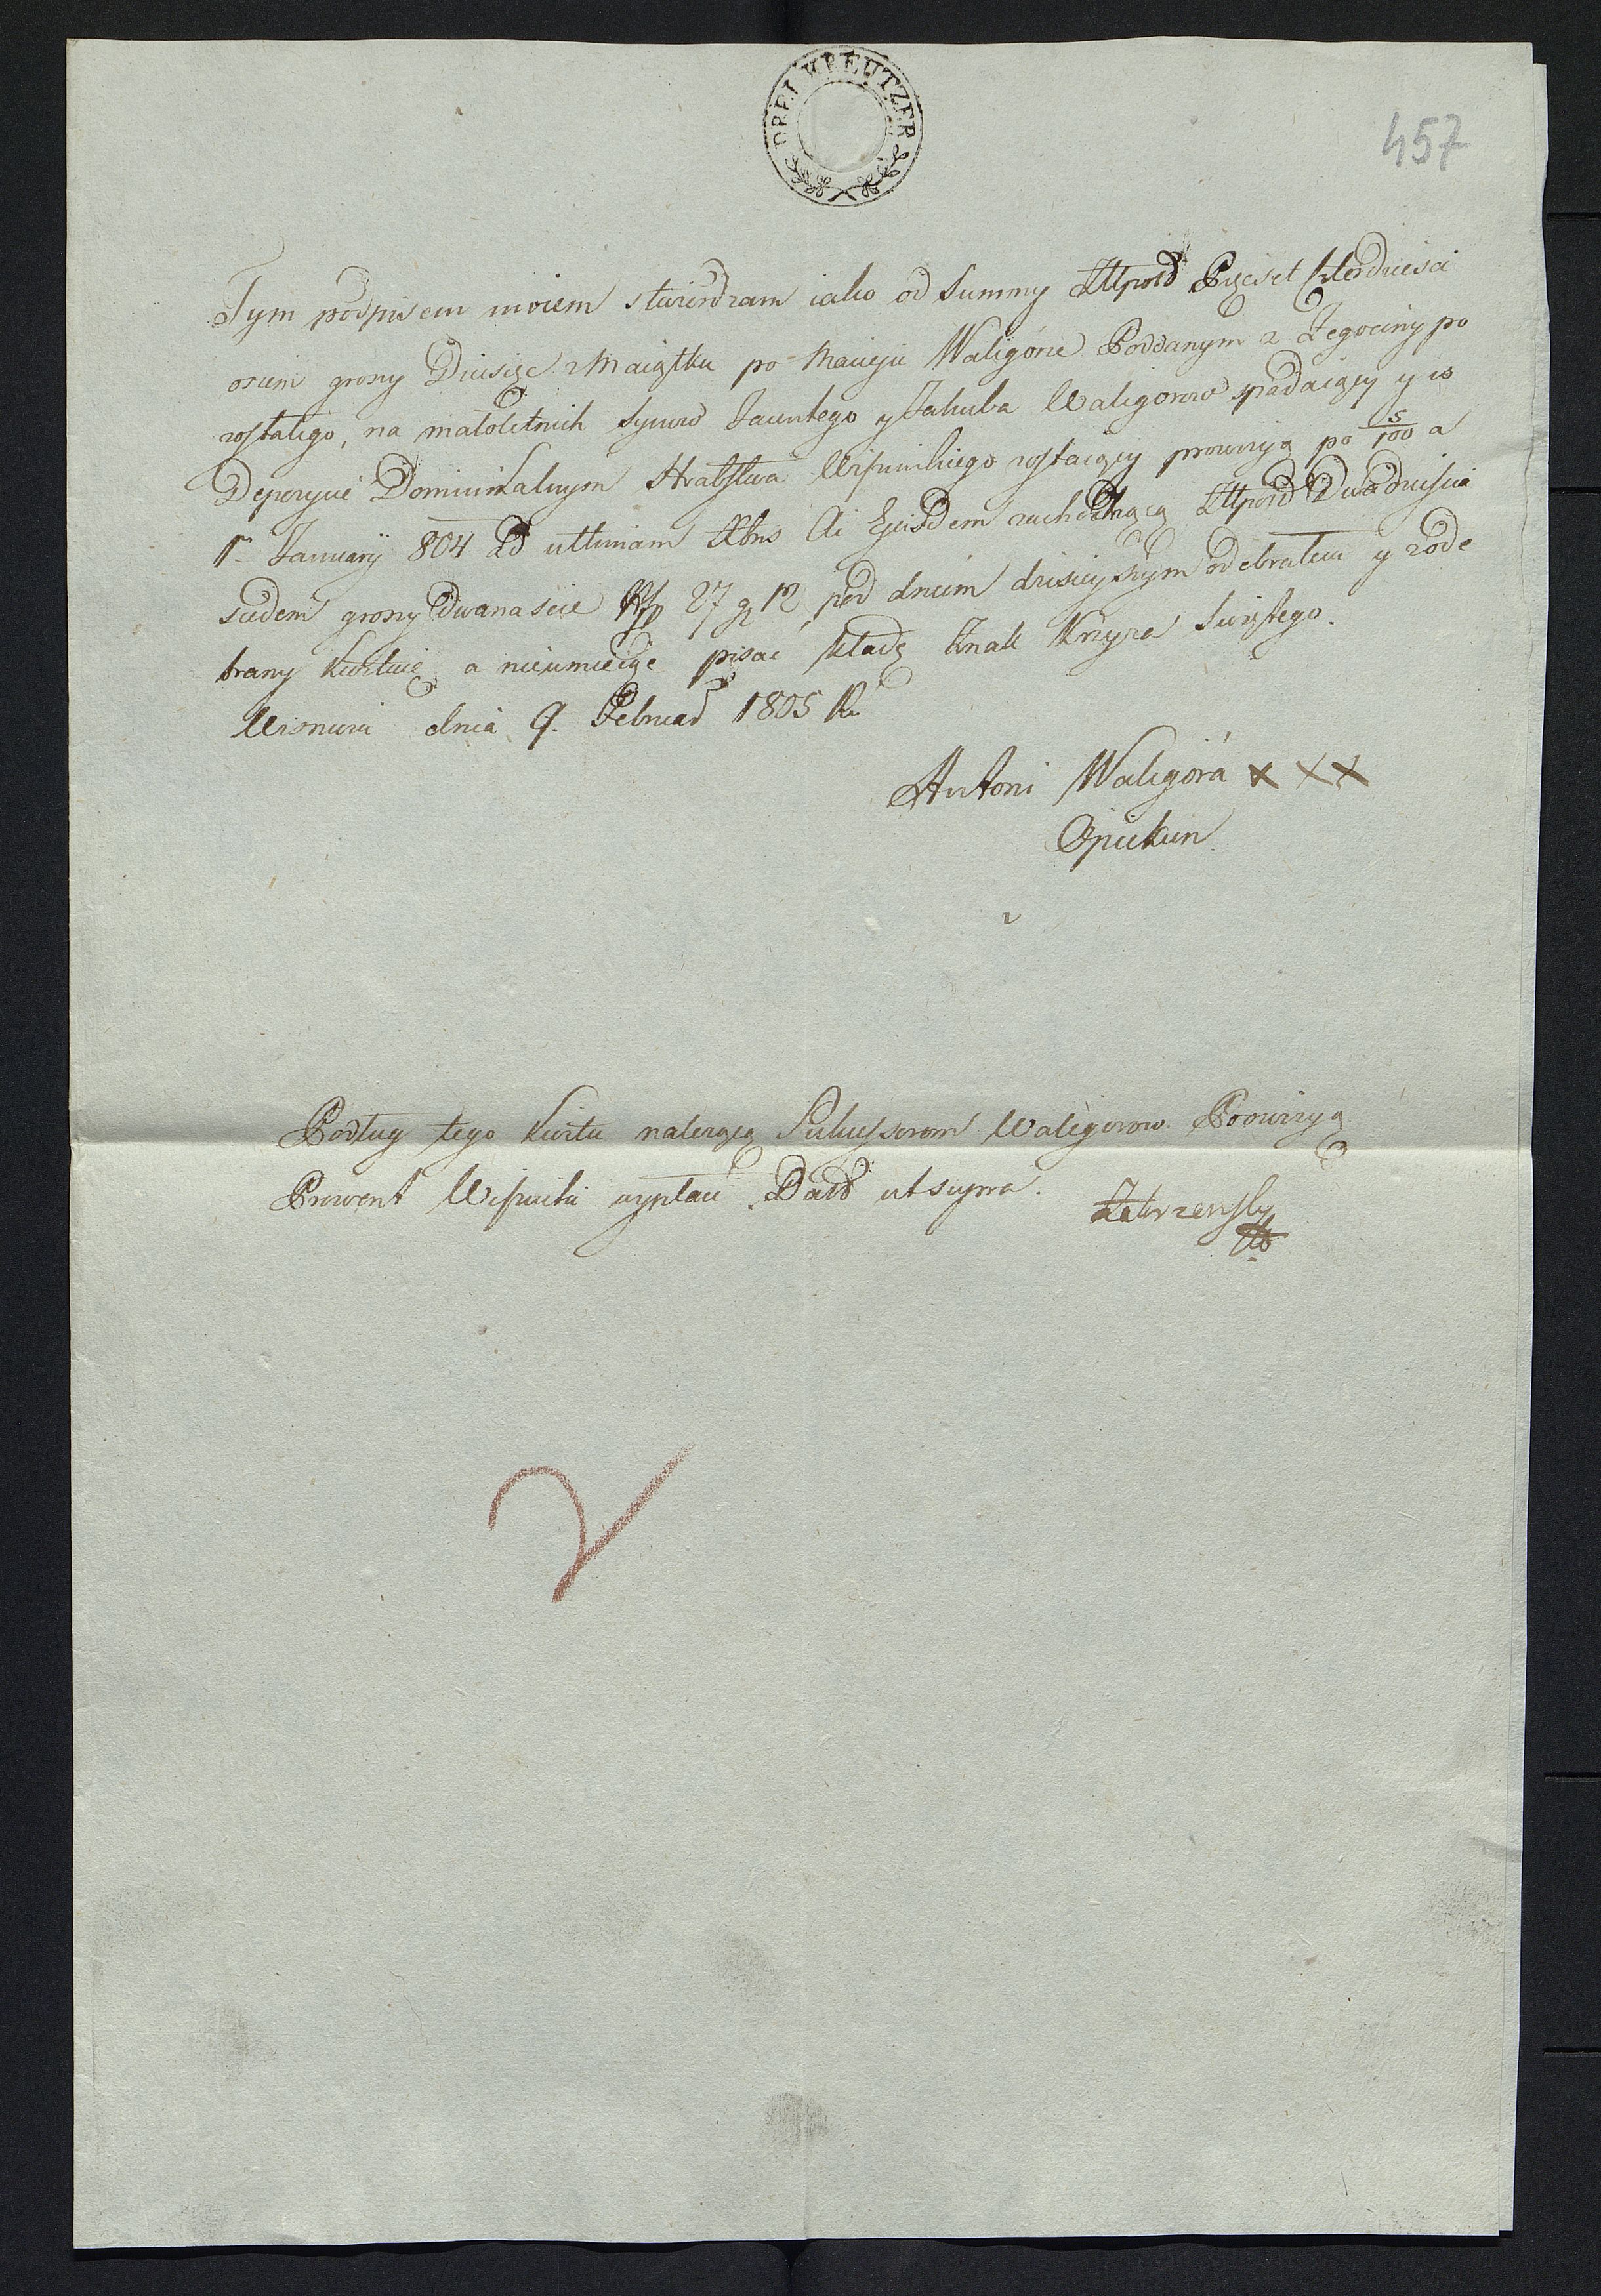 DREI KREUTZER
457
Tym podpisem moiem stwierdzam iako od Summy Złłpold Pięciset Czterdziesci
osiem groszy Dziesięc z Maiątku po Macieju Waligórze Poddanym z Żegociny po
zostałego, na małoletnich Synow Jacentego y Jakuba Waligorow spadaiący y w
Depozycie Dominikalnym Hrabstwa Wisnickiego zostaiący prowizyą po 5/100 a
1ma Januarij 804 ad ultimam Xbris Ai Ejusdem zachodzącą Złłpold Dwadziescia
siedem groszy Dwanascie 27 gr 12 pod dniem dzisieyszym odebrałem y zode
brany kwituię a nieumieiąc pisac kładę Znak Krzyza Swiętego.
Wisnicz dnia 9. Februar 1805 R.
Antoni Waligóra x x x
Opiekun.
Podług tego kwitu nalezącą Sukcessorom Waligorow. Prowizyą
Prowent Wisnicki wypłaci. Datt ut supra.